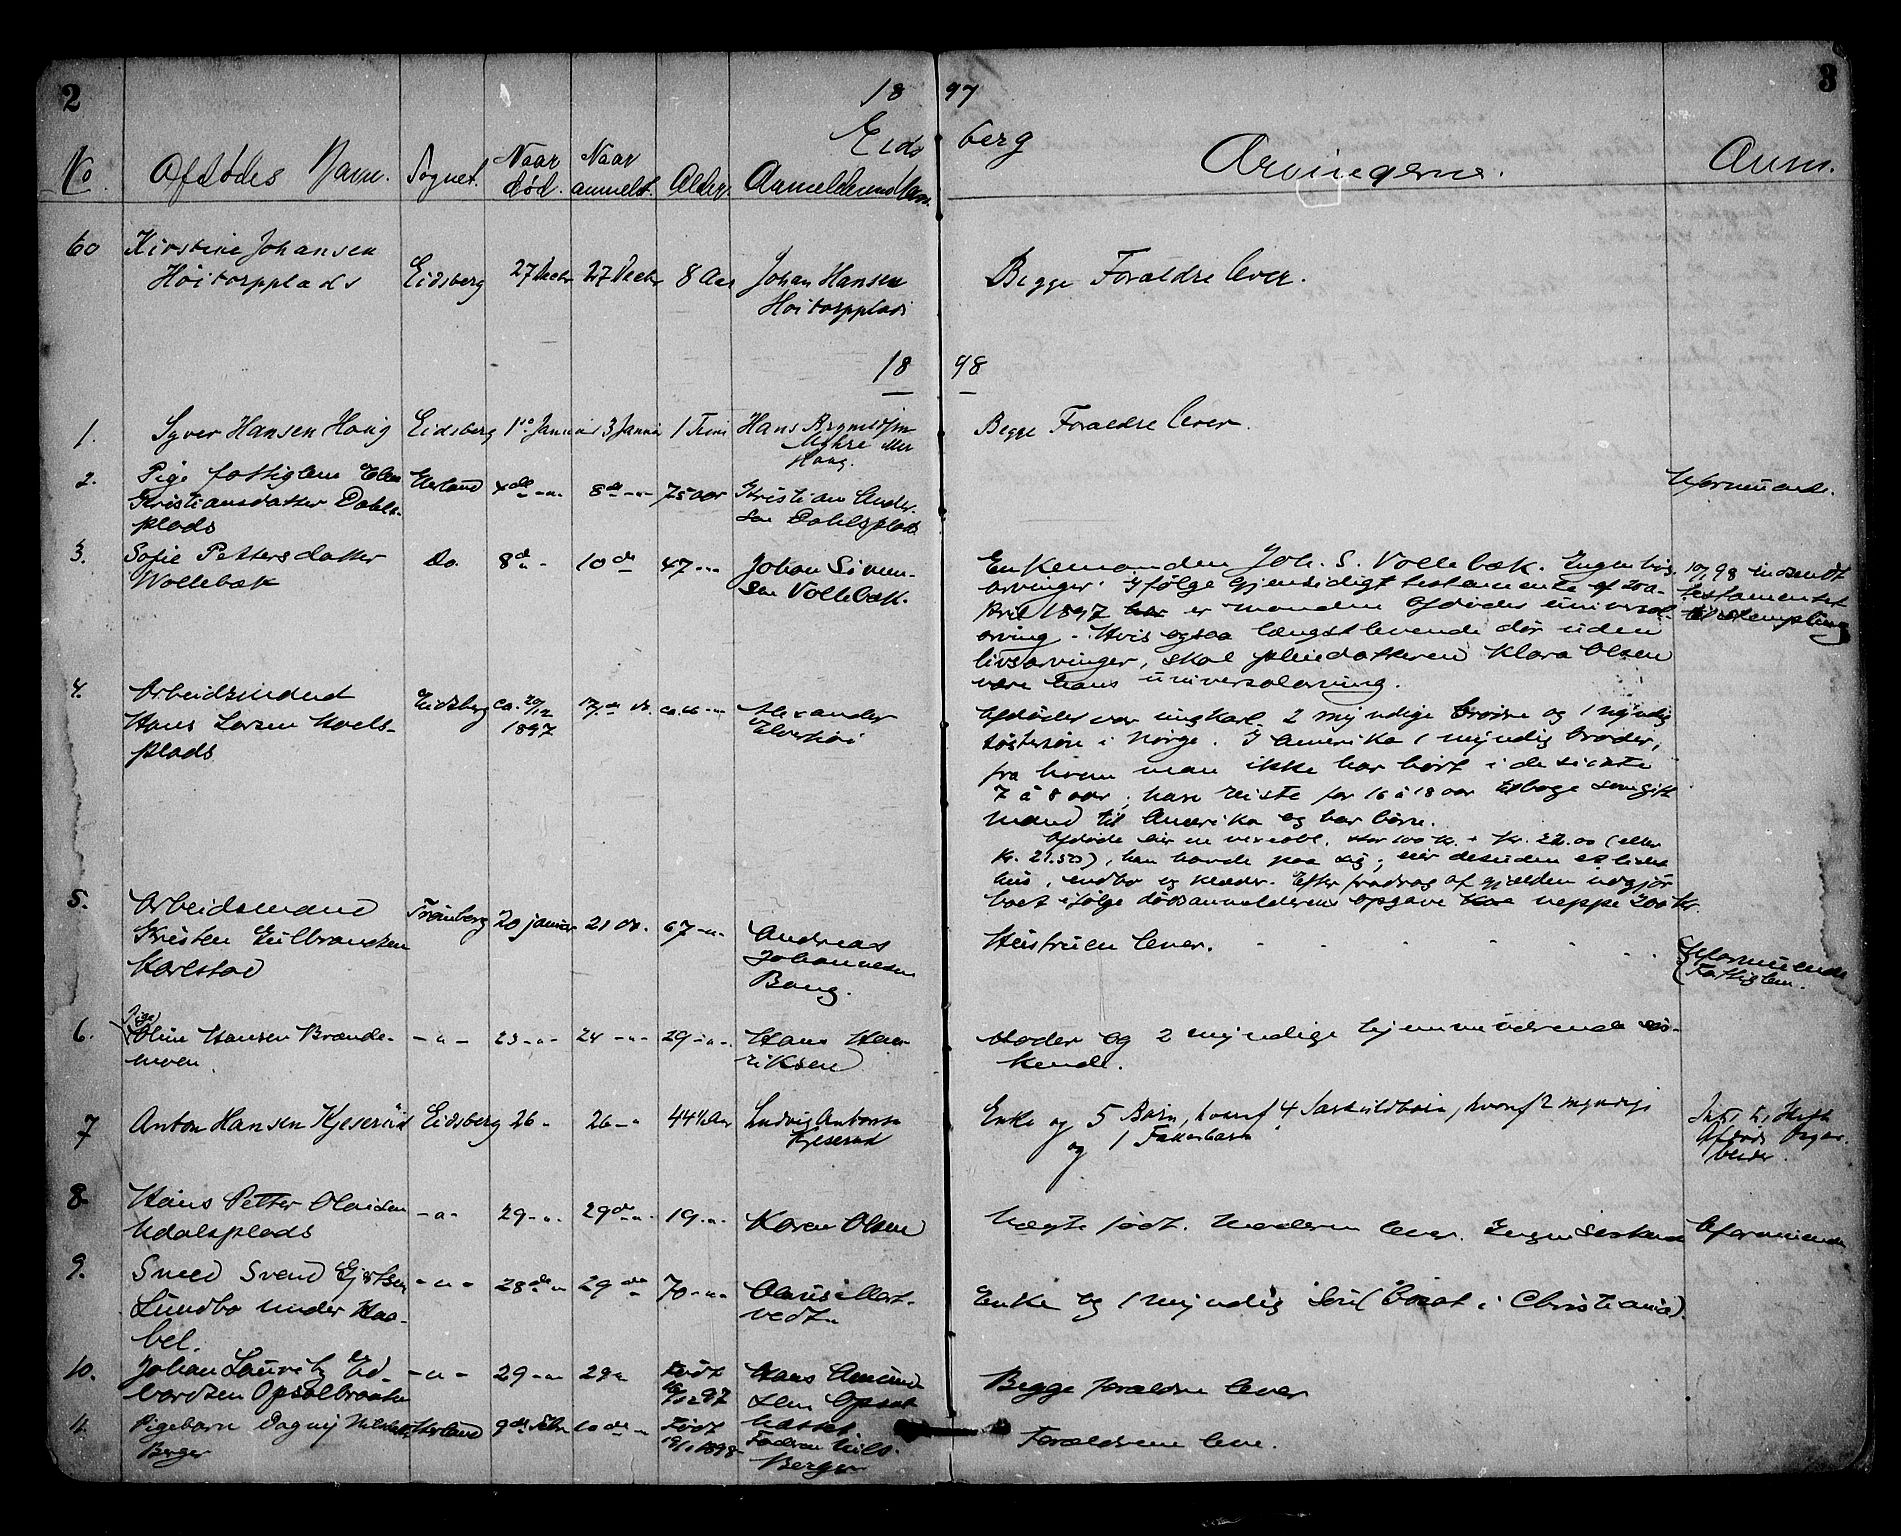 2
18 97
3
Eidsberg
No Afdødes Navn. Sognet. Naar død. Naar anmeldt. Alder. Anmelderens Navn. Arvingerne. Anm.
60 Kirstine Johansen
Höitorpplads Eidsberg 27 Decbr 27 Decbr 8 Aar Johan Hansen
Höitorpplads
Begge Forældre lever.
18 98
1. Syver Hansen Haug Eidsberg 1ste Januar 3 Januar 1 Time Hans
Haug.
Begge Forældre lever.
2. Pige fattiglem Elen
Kristiansdatter Dahls-
plads
Herland 4de -"- 8de -"- 75 aar Kristian Ander-
sen Dahlsplads
Uformuende.
3. Sofie Pettersdatter
Vollebæk
Do. 8de " 10de " 47 -"- Johan Simen-
sen Vollebæk.
Enkemanden Joh. S. Vollebæk. Ingen livs-
arvinger. Ifølge gjensidigt testamente af
April 1897 er manden afdødes universal-
arving. Hvis ogsaa længstlevende dør uden
livsarvinger, skal pleiedatteren Klara Olsen
være hans universalarving.
98 indsendt
testamentet
til stempling
4. Arbeidsmand
Hans Larsen Moels-
plads
Eidsberg ca. 20/12
1897
17de do. ca. Alexander
Elverhöi
Afdøde var ungkarl. 2 myndige brødre og 1 myndig
søstersøn i Norge. I Amerika 1 myndig broder,
fra hvem man ikke har hørt i de sidste
7 à 8 aar; han reiste for 16 à 18 aar tilbage som gift
mand til Amerika og har børn.
Afdøde eier en vexelobl. stor 100 Kr. + Kr. 22.00 (eller
Kr. 21.50), han havde paa sig; eier desuden et lidet
hus, indbo og klæder. Efter fradrag af gjælden udgjør
boet ifølge dødsanmelderens opgave neppe 200 Kr.
5. Arbeidsmand
Kristen Gulbrandsen
Karlstad
Trømborg 20 januar 21 do. 67 -"- Andreas
Johannesen
Bang.
Hustruen lever.
Uformuende
Fattiglem.
6. Pige
Oline Hansen Brænde-
moen
-"- 23 -"- 24 -"- 29 -"- Hans Hen-
riksen
Moder og 2 myndige hjemmeværende sø-
skende.
7 Anton Hansen Kjeserud Eidsberg 26 - 26 -" 44 1/2 Aar Ludvig Antonsen
Kjeserud
Enke og 5 Børn, hvoraf 4 Særkuldbørn, hvoraf 2 myndige
og 1 Fællesbarn
8. Hans Petter Olaisen
Udalsplads
-"- 29 -"- 29de -"- 19 -"- Karen Olsen
Uægte født. Moderen lever. Ingen Søskende
Uformuende
9. Smed Svend Gjertsen
Lundbo under Haa-
bel.
-"- 28de -" 29de " 70 -"- Claus Mat-
vedt
Enke og 1 myndig søn (bosat i Christiania).
10. Johan Lauritz Ed-
vardsen Opsalbraaten
-"- 29 -"- 29 " Født
97
Hans Amund-
sen Opsal
Begge forældre lever
11. Pigebarn Dagny
Berger
Herland 9de Febr 10de " Født
19/1 1898
Faderen Nils
Berger
Forældrene leve.